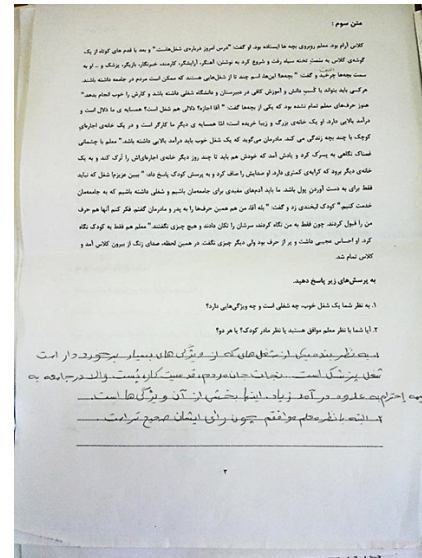 متن سوم :
کلاس آرام بود. معلم روبروی بچه ها ایستاده بود. او گفت: "درس امروز درباره‌ی شغل‌هاست" و بعد با قدم های کوتاه از یک
گوشه‌ی کلاس به سمت تخته سیاه رفت و شروع کرد به نوشتن، آهنگر، آرایشگر، کارمند، خبرنگار، بازیگر، پزشک و ... او به
سمت بچه‌ها چرخید و گفت: "بچه‌ها! این‌ها، اسم چند تا از شغل‌هایی هستند که ممکن است مردم در جامعه داشته باشند.
هرکسی باید بتواند با کسب دانش و آموزش کافی در دبیرستان و دانشگاه شغلی داشته باشد و کارش را خوب انجام بدهد."
هنوز حرف‌های معلم تمام نشده بود که یکی از بچه‌ها گفت: "آقا اجازه؟ دلالی هم شغل است؟ همسایه ی ما دلال است و
درآمد بالایی دارد. او یک خانه‌ی بزرگ و زیبا خریده است؛ امّا همسایه ی دیگر ما کارگر است و در یک خانه‌ی اجاره‌ای
کوچک با چند بچه زندگی می کند. مادرمان می‌گوید که یک شغل خوب باید درآمد بالایی داشته باشد." معلم با چشمانی
غمناک نگاهی به پسرک کرد و یادش آمد که خودش هم باید تا چند روز دیگر خانه‌ی اجاره‌ای‌اش را ترک کند و به یک
خانه‌ی دیگر برود که کرایه‌ی کمتری دارد. او صدایش را صاف کرد و به پرسش کودک پاسخ داد: "ببین عزیزم! شغل که نباید
فقط برای به دست آوردن پول باشد. ما باید آدم‌های مفیدی برای جامعه‌مان باشیم و شغلی داشته باشیم که به جامعه‌مان
خدمت کنیم." کودک لبخندی زد و گفت: "بله آقا، من هم همین حرف‌ها را به پدر و مادرمان گفتم. فکر کنم آنها هم حرف
من را قبول کردند. چون فقط به من نگاه کردند، سرشان را تکان دادند و هیچ چیزی نگفتند." معلم هم فقط به کودک نگاه
کرد. او احساس عجیبی داشت و پر از حرف بود ولی دیگر چیزی نگفت. در همین لحظه، صدای زنگ از بیرون کلاس آمد و
کلاس تمام شد.
به پرسش‌های زیر پاسخ دهید.
۱. به نظر شما یک شغل خوب، چه شغلی است و چه ویژگی‌هایی دارد؟
۲. آیا شما با نظر معلم موافق هستید یا نظر مادر کودک؟ یا هر دو؟
۱. به نظر بنده یکی از شغل های که از ویژگی های بسیار برخوردار است
شغل پزشکی است. نجات جان مردم، فرصیت کار، پُست والا در جامعه به
همه احترام به علاوه در آمد زیاد. اینها بخشی از آن ویژگی ها است.
۲. البته با نظر معلم موافقم چون رائ ایشان صحیح تر است.
۲